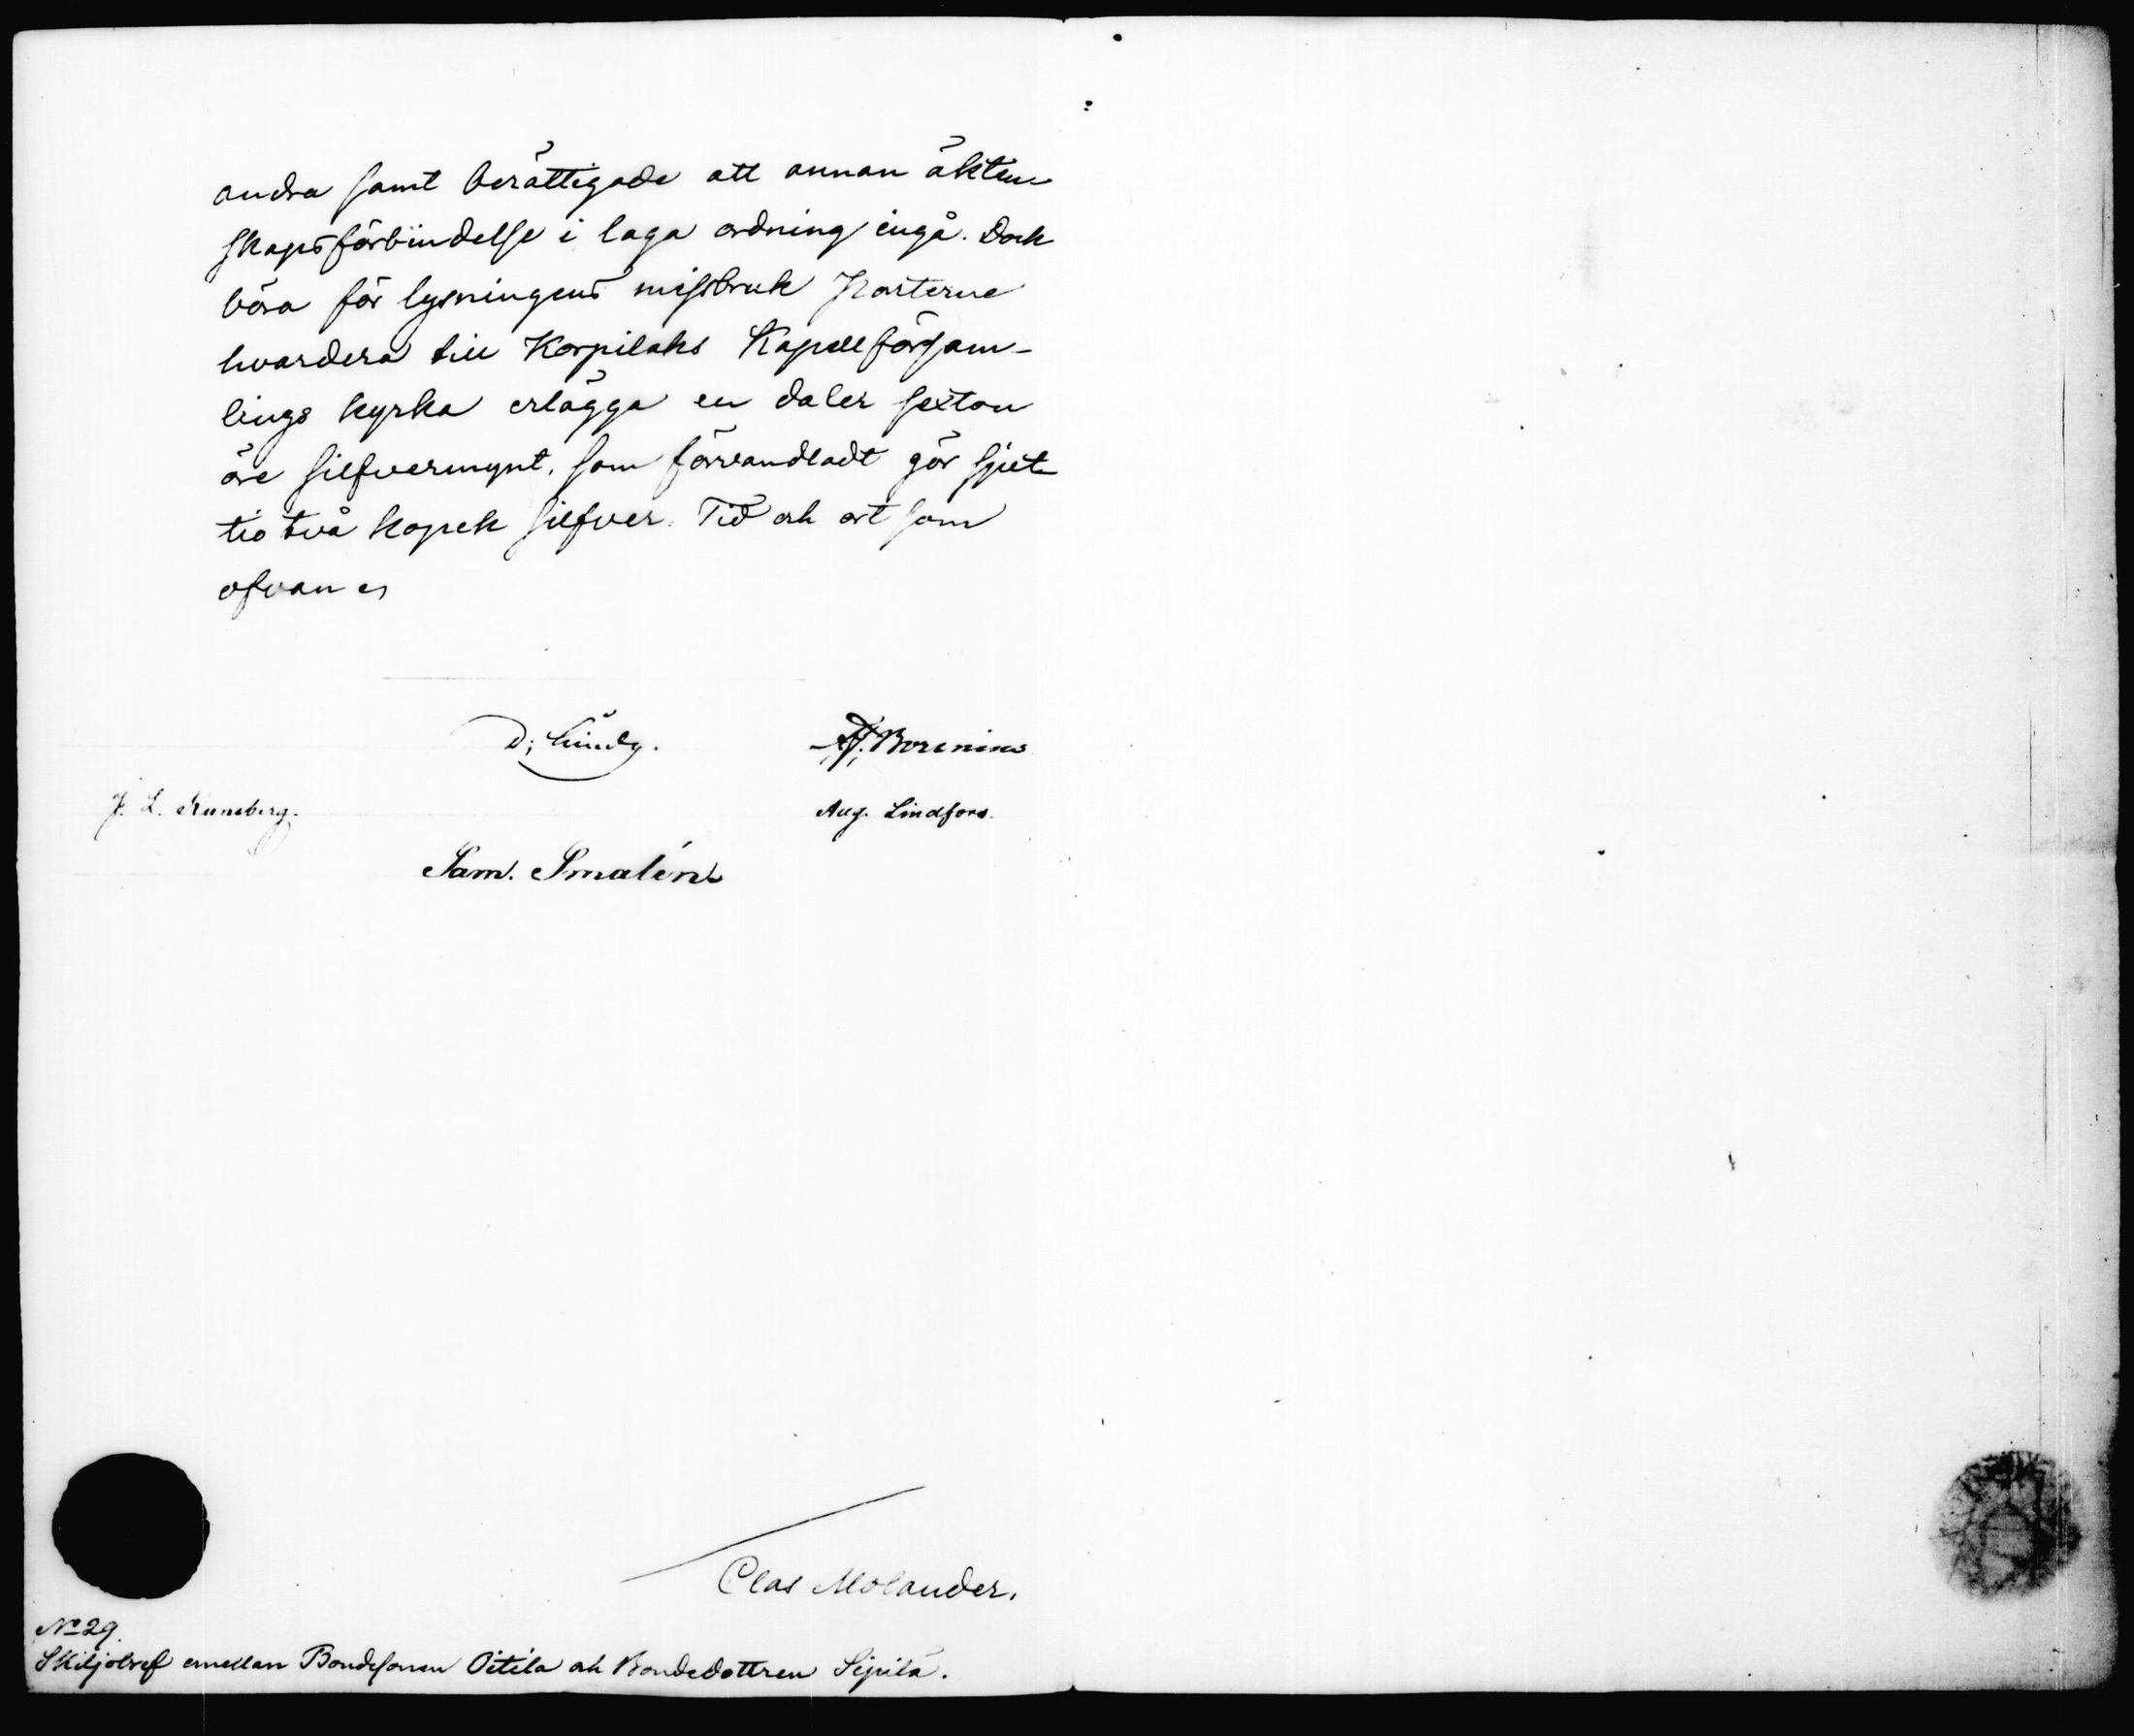 andra samt berättigade att annan äkten
skapsförbindelse i laga ordning ingå. Dock
böra för lysningens missbruk Parterne
hvardera till Korpilaks Kapellförsam-
lings kyrka erlägga en daler sexton
öre silfvermynt, som förvandladt gör sjut
tio två kopek silfver. Tid och ort som
ofvan
A. J. Borenius
J. L. Runeberg.
Aug. Lindfors.
Sam. Smalén
Clas Molander.
No 29.
Skiljobref emellan Bondesonen Oitila och Bondedottren Sipilä.